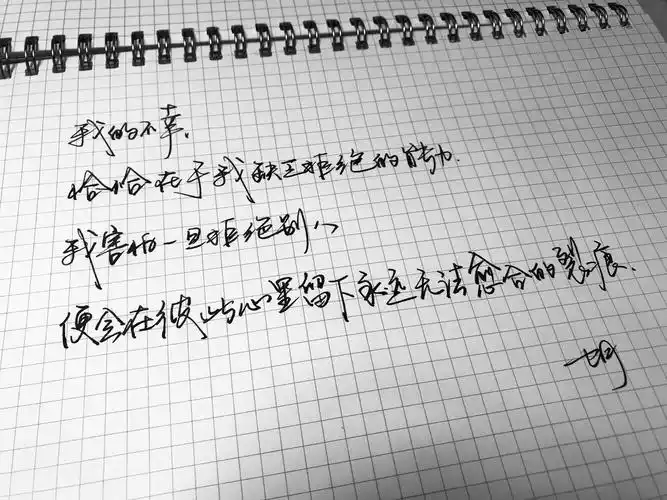 我的不幸，
恰恰在于我缺乏拒绝的能力.
我害怕一旦拒绝别人
便会在彼此心里留下永远无法愈合的裂痕.